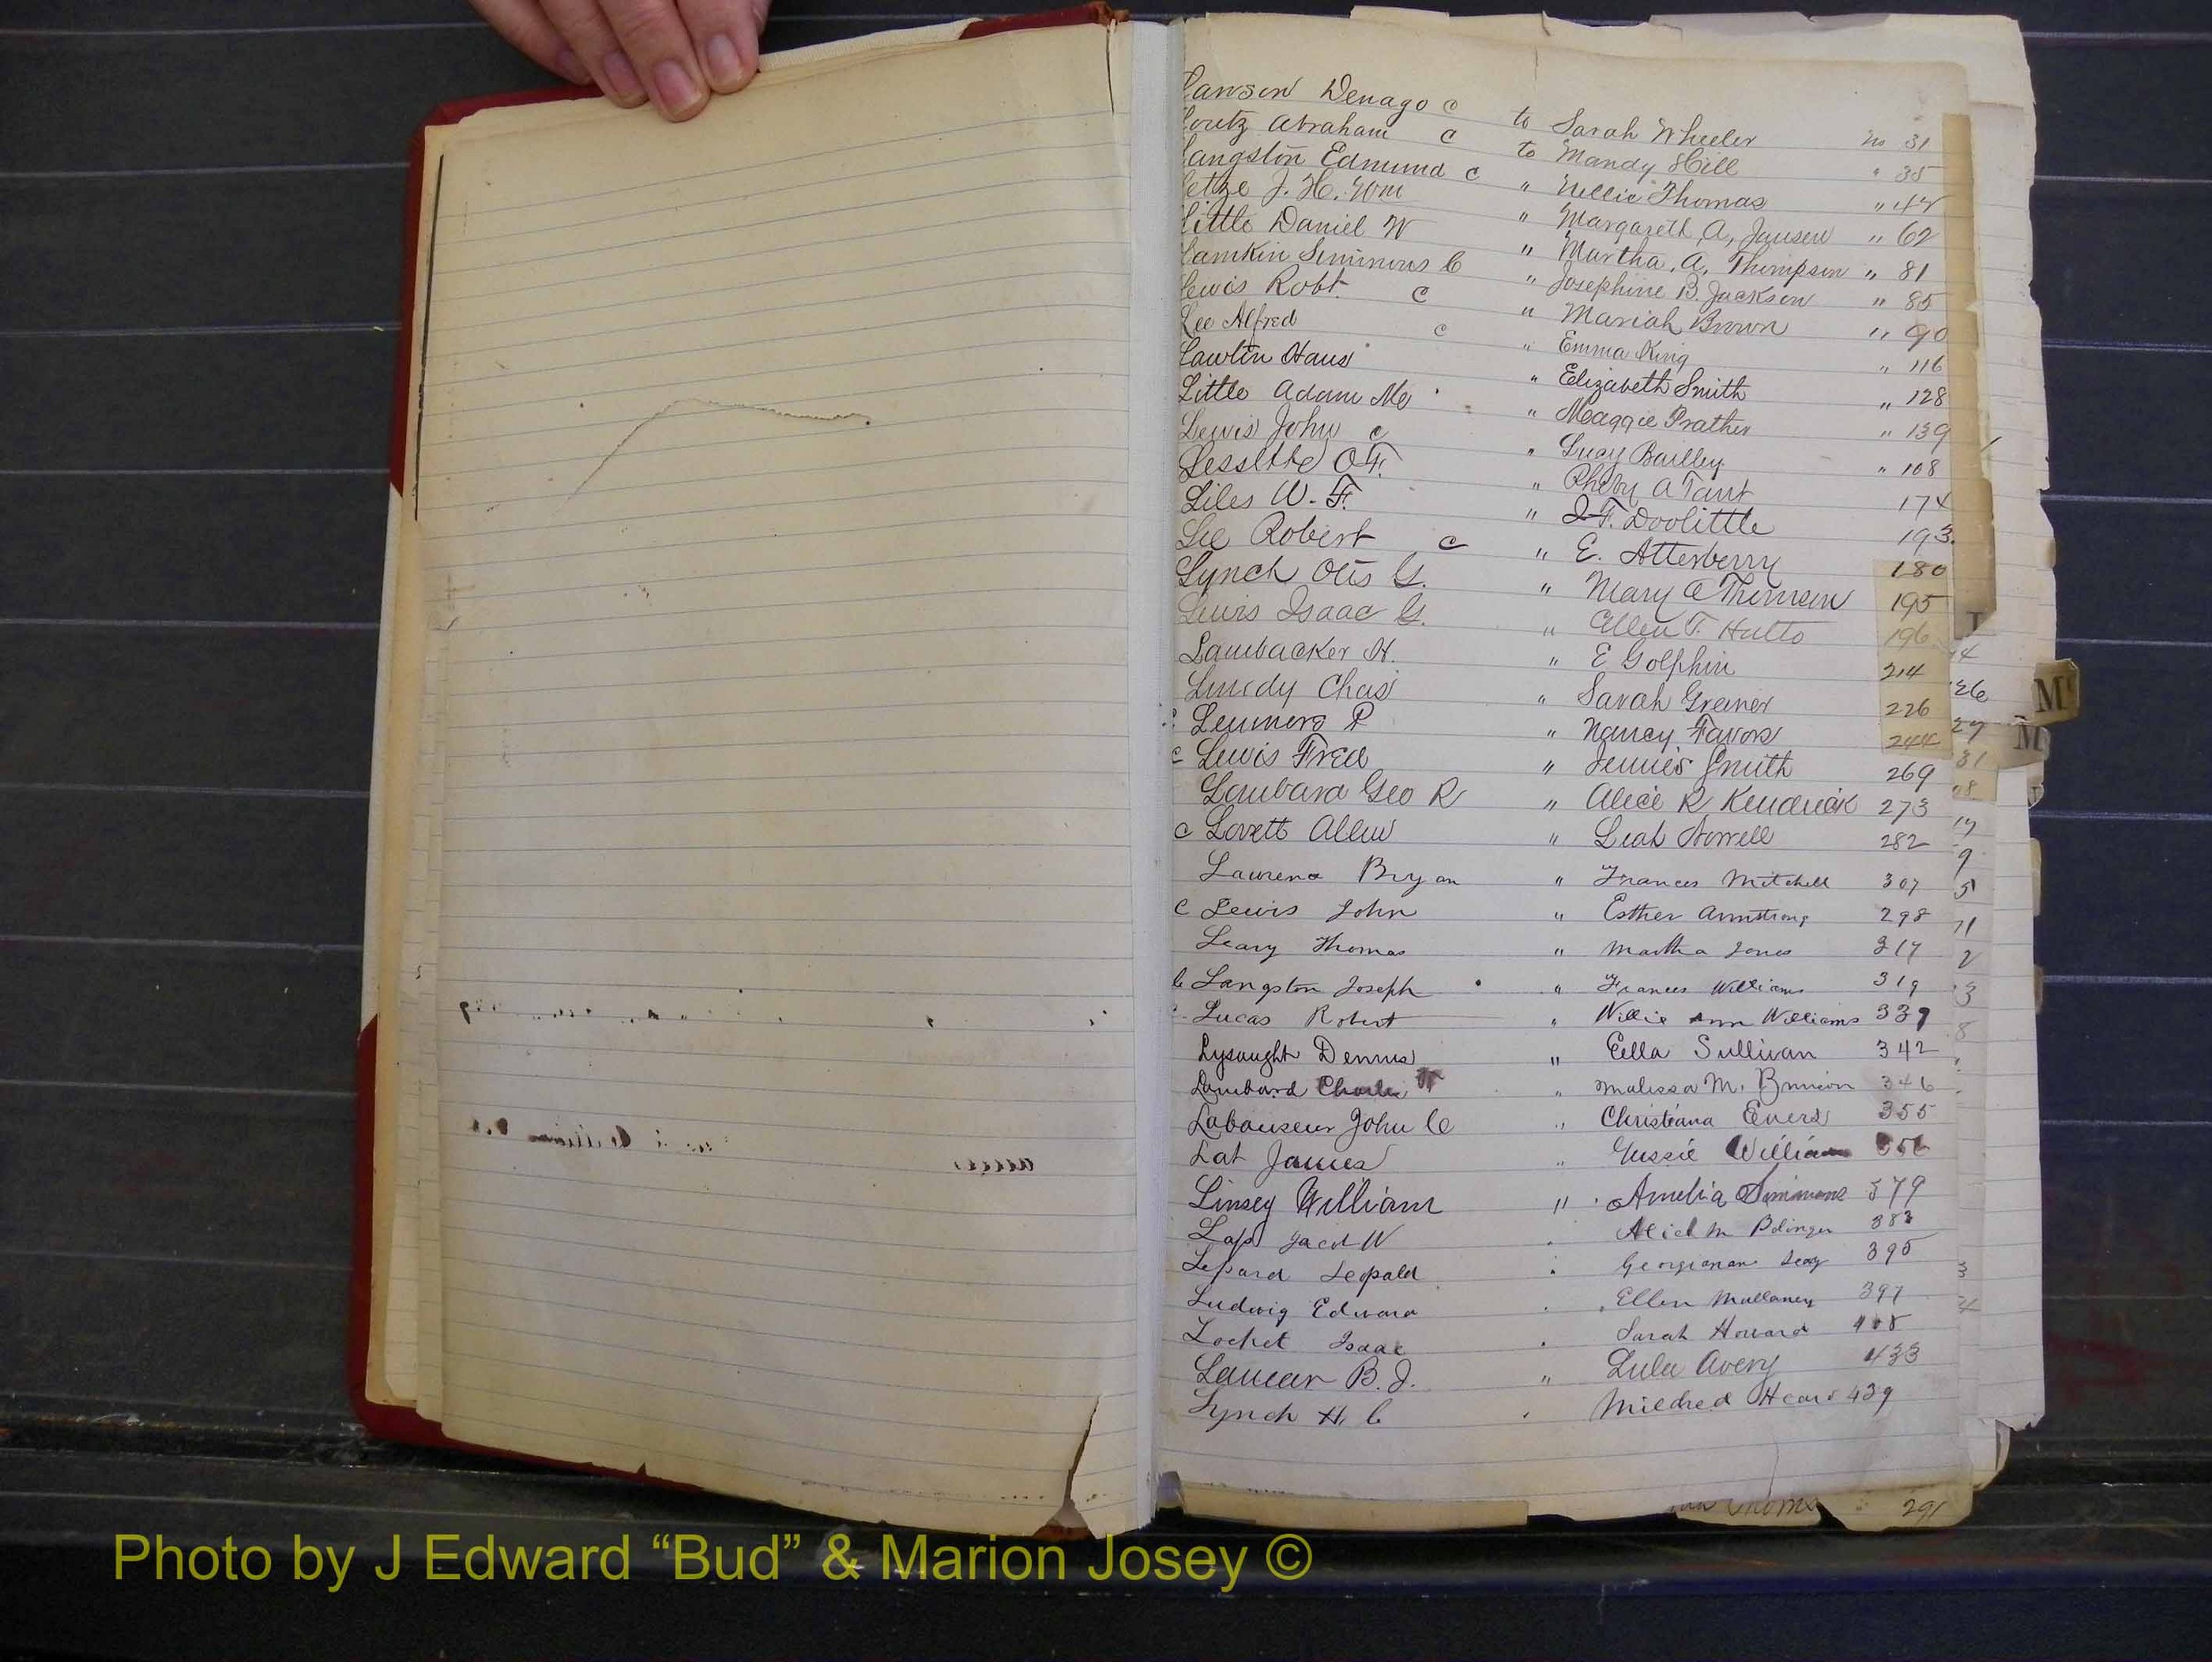 Lawson Denago c to Sarah Wheeler No 31
Loutz Abraham c to Mandy Hill " 35
Langston Edmund c " Nellie Thomas " 42
Letze J. H. Wm " Margareth A, Jansen " 62
Little Daniel W " Martha, A, Thompson " 81
Lamkin Simmons C " Josephine B. Jackson " 85
Lewis Robt. c " Mariah Brown " 90
Lee Alfred c " Emma King " 116
Lawlin Haus " Elizabeth Smith " 128
Little Adam Mc " Maggie Prather " 139
Lewis John c " Lucy Bailley " 108
O.F. " Pheby A Tant 174
Liles W. F. " J. F. Doolittle 193.
Lee Robert c " E. Atterberry 180
Lynch Otis G. " Mary C Thomson 195
Lewis Isaac G. " Ellen T. Hutto 196
Lambacker H. " E Golphin 214
Lundy Chas " Sarah Greiner 226
c P " Nancy Favors 244
c Lewis Fred " Jennie Smith 269
Lombard Geo R " Alice R Kendrick 273
c Lovett Allen " Leah 282
Bryan " Frances Mitchell 307
c Lewis John " Esther Armstrong 298
Leary Thomas " Martha Jones 317
c Langston Joseph " Frances Williams 319
Lucas Robert " Willie Ann Williams 339
Lysaught Dennis " Ella Sullivan 342
Lombard Charlie " Malissa M. 346
Labouseur John C " Christiana Evers 355
Lat James " Gussie William 356
Linsey William " Amelia Simmons 379
Jacob W " M 383
Lepard Leopald " 395
Ludwig Edward " Ellen Mullaney 397
Locket Isaac " Sarah Howard 408
B. J. " Lula Avery 433
Lynch H. C " Mildred Heard 439
291
M
M
Photo by J Edward “Bud” & Marion Josey ©